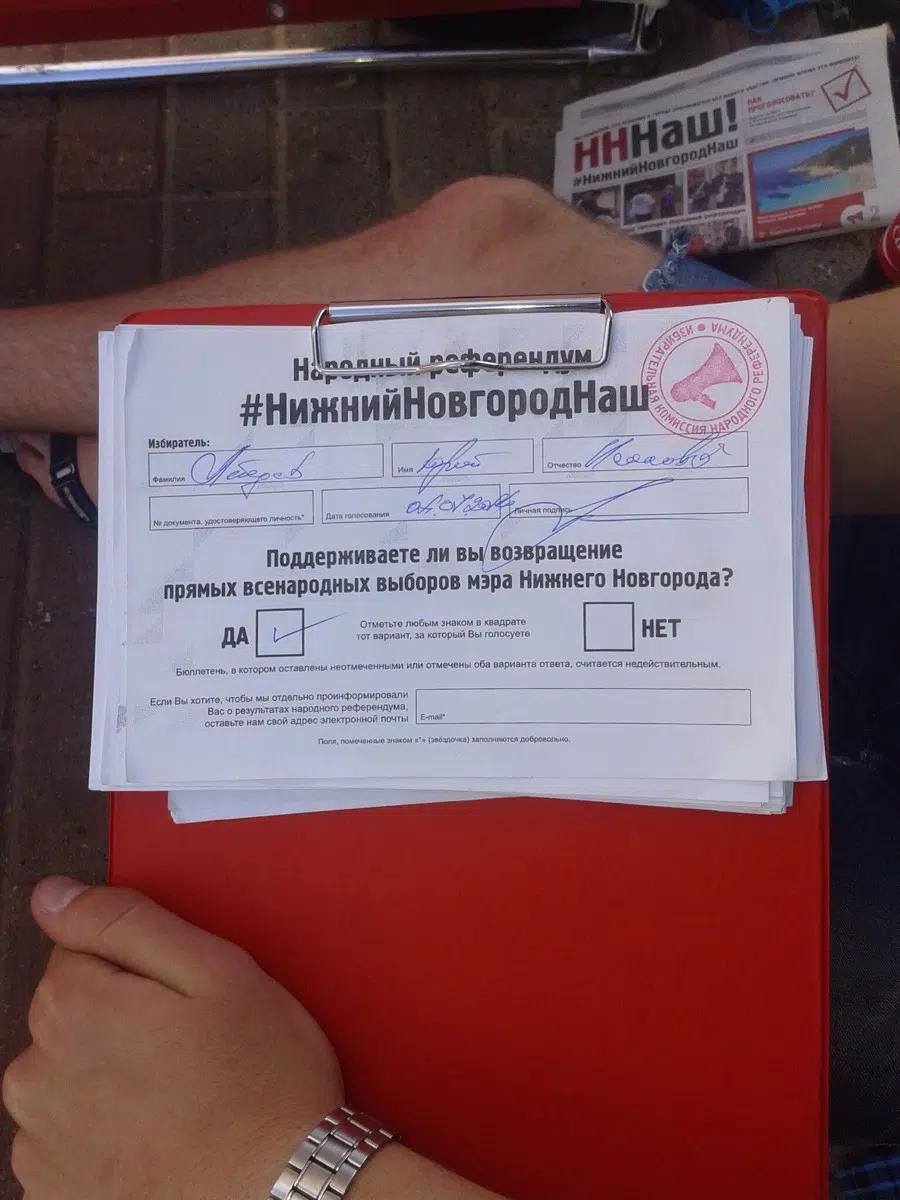 ННаш!
#НижнийНовгородНаш
КАК
ПРОГОЛОСОВАТЬ?
2
Народный референдум
#НижнийНовгородНаш
ИЗБИРАТЕЛЬНАЯ КОМИССИЯ НАРОДНОГО РЕФЕРЕНДУМА
Избиратель:
Фамилия
Имя Юрий
Отчество
№ документа, удостоверяющего личность*
Дата голосования
Личная подпись
Поддерживаете ли вы возвращение
прямых всенародных выборов мэра Нижнего Новгорода?
ДА
Отметьте любым знаком в квадрате
тот вариант, за который Вы голосуете
НЕТ
Бюллетень, в котором оставлены неотмеченными или отмечены оба варианта ответа, считается недействительным.
Если Вы хотите, чтобы мы отдельно проинформировали
Вас о результатах народного референдума,
оставьте нам свой адрес электронной почты
E-mail*
Поля, помеченные знаком «*» (звёздочка) заполняются добровольно.